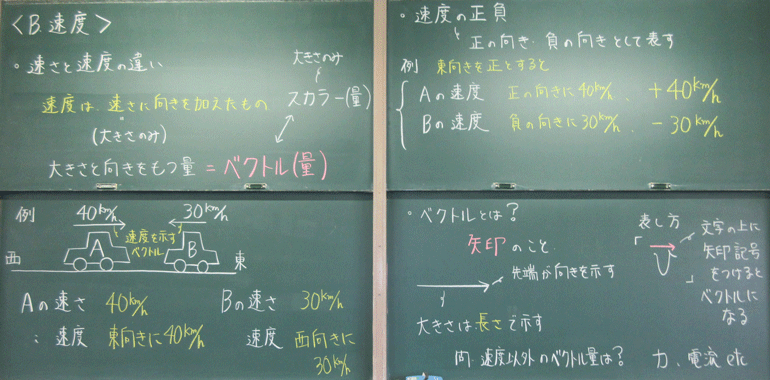 〈B. 速度〉
・速さと速度の違い
大きさのみ
速度は、速さに向きを加えたもの
スカラー(量)
(大きさのみ)
大きさと向きをもつ量 = ベクトル(量)
例
40km/h
30km/h
速度を示す
ベクトル
A
B
西
東
Aの速さ 40km/h
Bの速さ 30km/h
〃 速度 東向きに40km/h
速度 西向きに
30km/h
・速度の正負
正の向き・負の向きとして表す
例 東向きを正とすると
Aの速度 正の向きに40km/h、+40km/h
Bの速度 負の向きに30km/h、-30km/h
・ベクトルとは?
矢印のこと
先端が向きを示す
大きさは長さで示す
表し方
「v」
文字の上に
矢印記号
をつけると
ベクトルに
なる
問. 速度以外のベクトル量は?
力、電流 etc